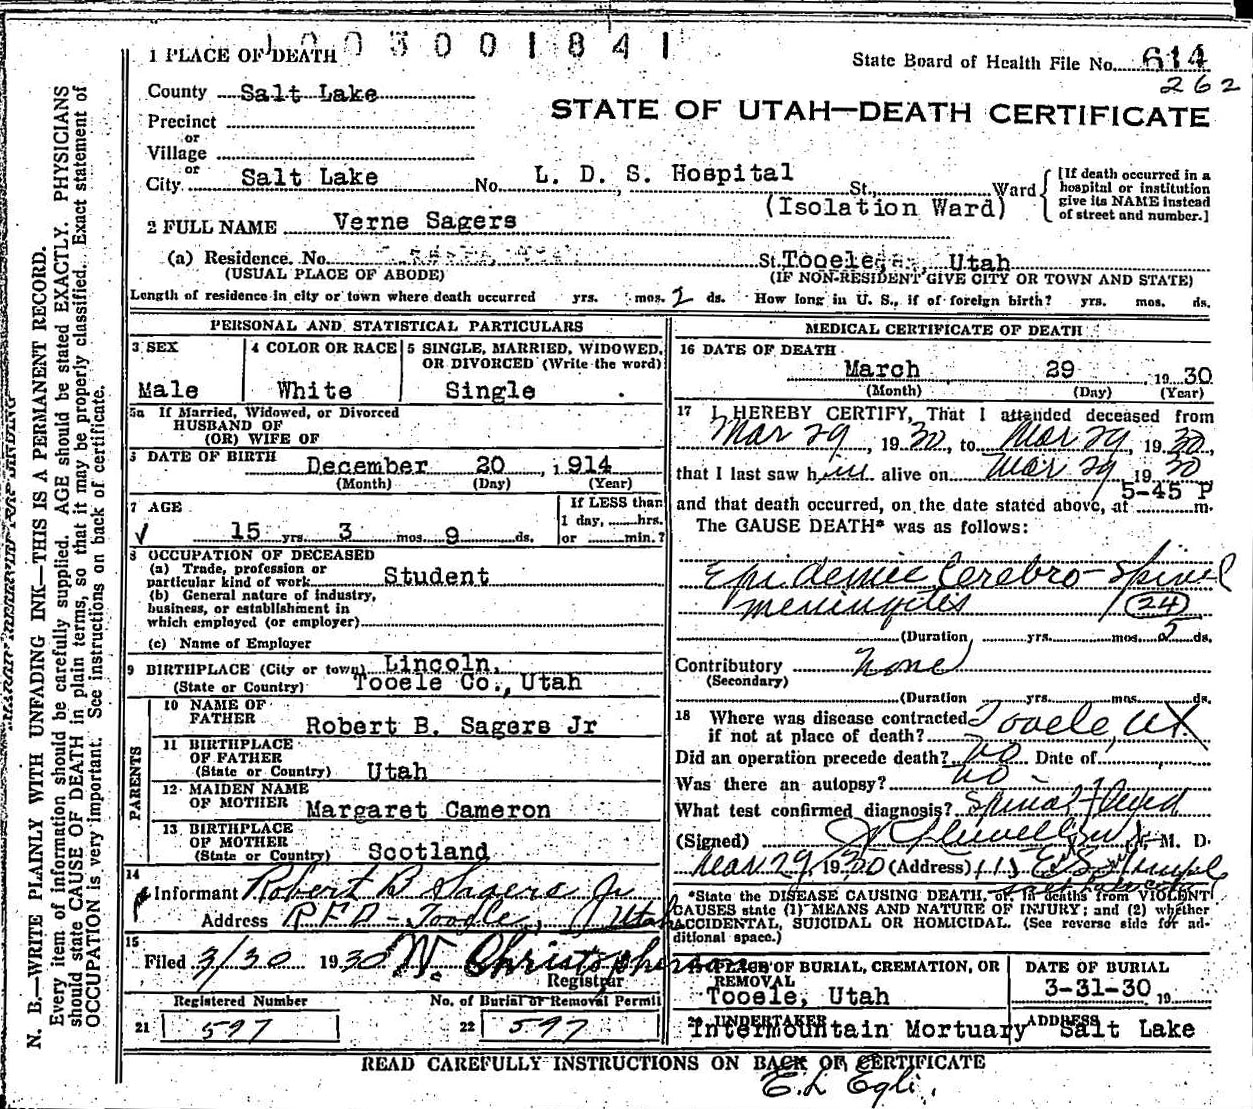 1003001841
1 PLACE OF DEATH
State Board of Health File No. 614
262
County Salt Lake
STATE OF UTAH—DEATH CERTIFICATE
Precinct
or
Village
or
City Salt Lake No. L. D. S. Hospital St., Ward
(Isolation Ward)
[If death occurred in a
hospital or institution
give its NAME instead
of street and number.]
2 FULL NAME Verne Sagers
(a) Residence. No. St. Tooele, Utah
(USUAL PLACE OF ABODE) (IF NON-RESIDENT GIVE CITY OR TOWN AND STATE)
Length of residence in city or town where death occurred yrs. mos. 2 ds. How long in U. S., if of foreign birth? yrs. mos. ds.
PERSONAL AND STATISTICAL PARTICULARS
3 SEX
Male
4 COLOR OR RACE
White
5 SINGLE, MARRIED, WIDOWED,
OR DIVORCED (Write the word)
Single
5a If Married, Widowed, or Divorced
HUSBAND OF
(OR) WIFE OF
DATE OF BIRTH December 20, 1914
(Month) (Day) (Year)
7 AGE
15 yrs. 3 mos. 9 ds.
If LESS than
1 day, hrs.
or min.?
8 OCCUPATION OF DECEASED
(a) Trade, profession or
particular kind of work Student
(b) General nature of industry,
business, or establishment in
which employed (or employer)
(c) Name of Employer
9 BIRTHPLACE (City or town) Lincoln,
(State or Country) Tooele Co., Utah
PARENTS
10 NAME OF
FATHER Robert B. Sagers Jr
11 BIRTHPLACE
OF FATHER
(State or Country) Utah
12 MAIDEN NAME
OF MOTHER Margaret Cameron
13 BIRTHPLACE
OF MOTHER
(State or Country) Scotland
14
Informant Robert B Sagers Jr
Address R.F.D - Tooele, Utah
15
Filed 3/30 1930 W. Christopherson
Registrar
Registered Number No. of Burial or Removal Permit
21 597 22 597
MEDICAL CERTIFICATE OF DEATH
16 DATE OF DEATH
March 29, 1930
(Month) (Day) (Year)
17 I HEREBY CERTIFY, That I attended deceased from
Mar 29, 1930, to Mar 29, 1930,
that I last saw him alive on Mar 29 1930
and that death occurred, on the date stated above, at 5-45 P m.
The CAUSE DEATH* was as follows:
Epidemic Cerebro-Spinal
meningitis (24)
(Duration yrs. mos. 5 ds.
Contributory None
(Secondary)
(Duration yrs. mos. ds.
18 Where was disease contracted
if not at place of death? Tooele, Ut.
Did an operation precede death? no Date of
Was there an autopsy? no
What test confirmed diagnosis? Spinal fluid
(Signed) M. D.
Mar 29, 1930 (Address)
*State the DISEASE CAUSING DEATH, or, in deaths from VIOLENT
CAUSES state (1) MEANS AND NATURE OF INJURY; and (2) whether
ACCIDENTAL, SUICIDAL OR HOMICIDAL. (See reverse side for ad-
ditional space.)
PLACE OF BURIAL, CREMATION, OR
REMOVAL
Tooele, Utah
DATE OF BURIAL
3-31-30 19
UNDERTAKER
Intermountain Mortuary
ADDRESS
Salt Lake
READ CAREFULLY INSTRUCTIONS ON BACK OF CERTIFICATE
E. L Egli.
N. B.—WRITE PLAINLY WITH UNFADING INK—THIS IS A PERMANENT RECORD.
Every item of information should be carefully supplied. AGE should be stated EXACTLY. PHYSICIANS
should state CAUSE OF DEATH in plain terms, so that it may be properly classified. Exact statement of
OCCUPATION is very important. See instructions on back of certificate.